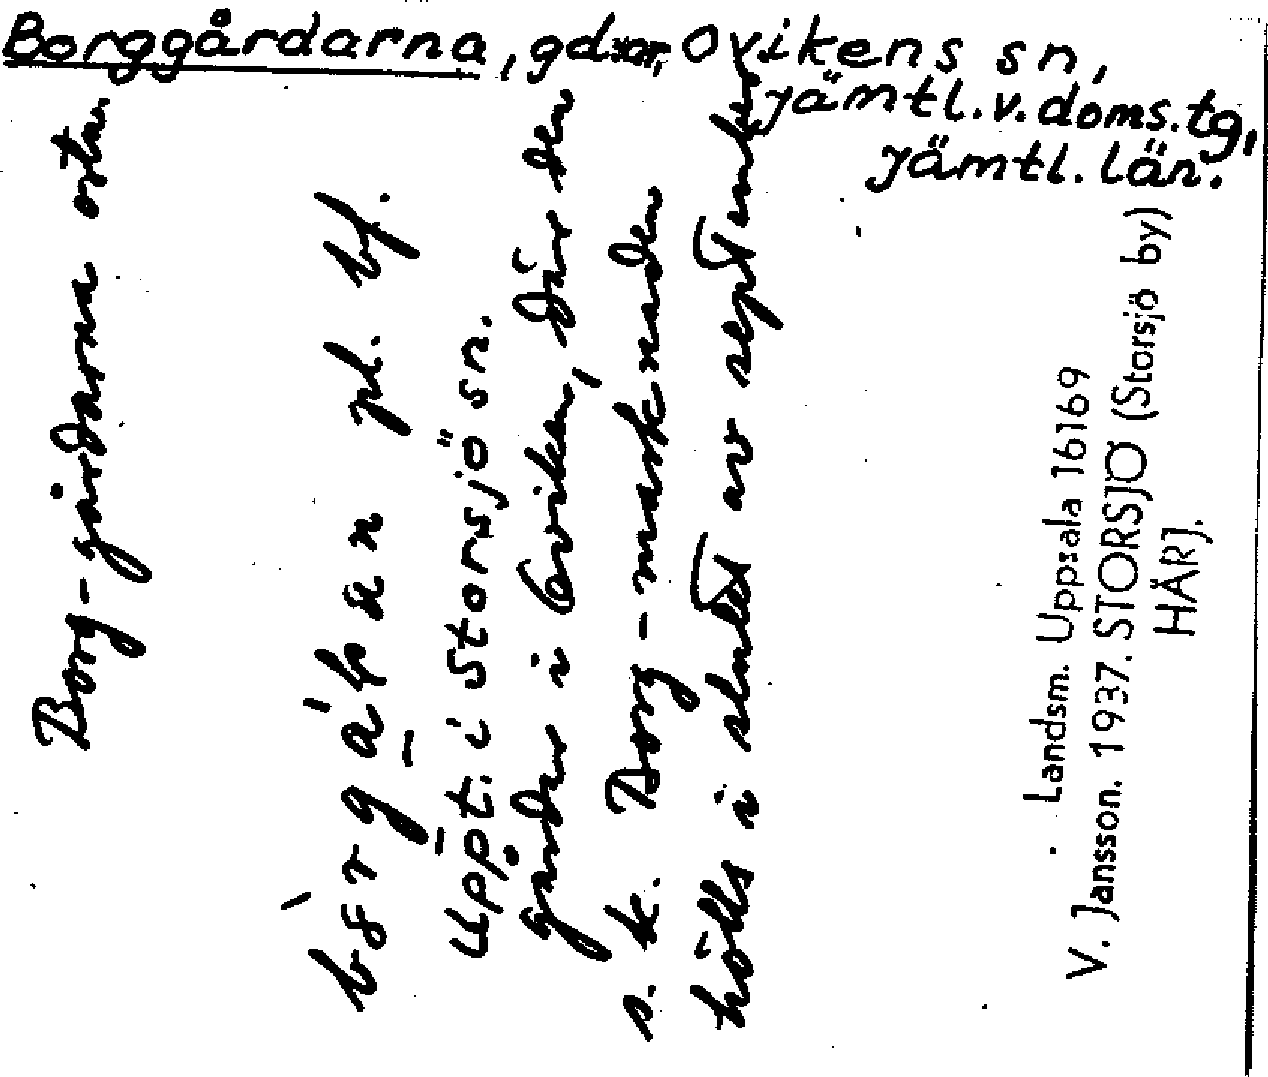 Borggårdarna, gdar, Ovikens sn,
Jämtl. v. doms. tg,
Jämtl. län.
Borg-gårdarna
pl. bf.
uppt. i Storsjö sn.
gårdar i Oviken, där den
s. k. Borg-marknaden
hölls i slutet av september
Landsm. Uppsala 16169
V. Jansson. 1937. STORSJÖ (Storsjö by)
HÄRJ.